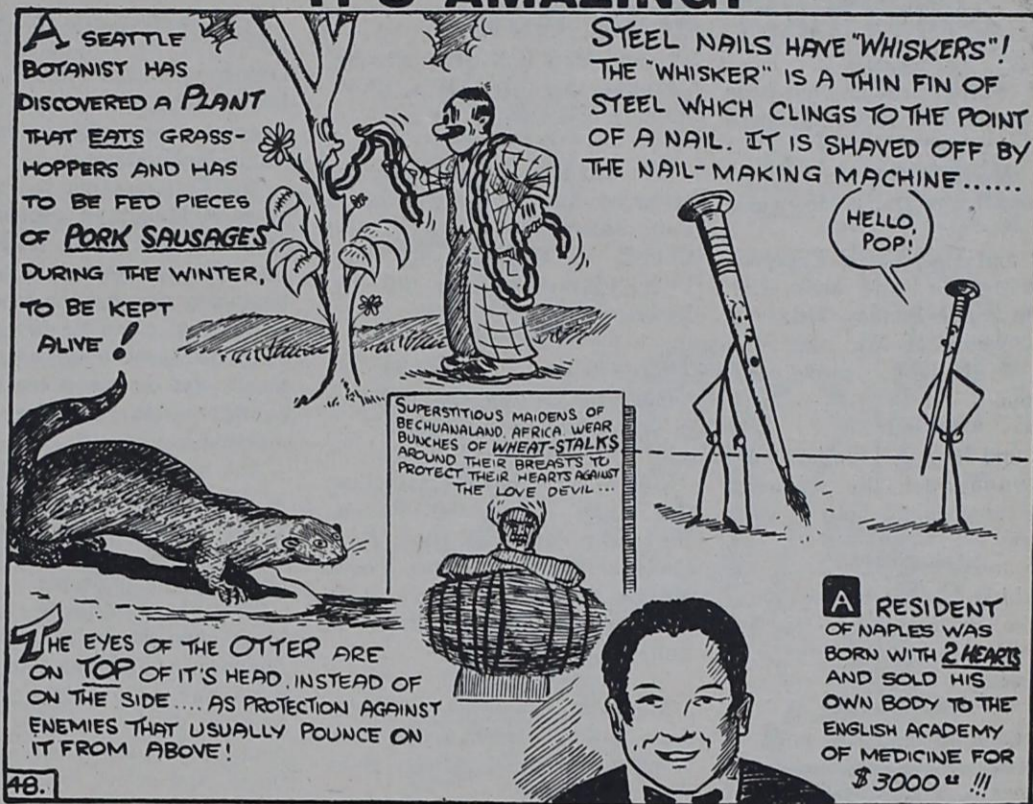 IT'S AMAZING!
A SEATTLE
BOTANIST HAS
DISCOVERED A PLANT
THAT EATS GRASS-
HOPPERS AND HAS
TO BE FED PIECES
OF PORK SAUSAGES
DURING THE WINTER,
TO BE KEPT
ALIVE!
STEEL NAILS HAVE "WHISKERS"!
THE "WHISKER" IS A THIN FIN OF
STEEL WHICH CLINGS TO THE POINT
OF A NAIL. IT IS SHAVED OFF BY
THE NAIL-MAKING MACHINE......
HELLO,
POP!
SUPERSTITIOUS MAIDENS OF
BECHUANALAND, AFRICA, WEAR
BUNCHES OF WHEAT-STALKS
AROUND THEIR BREASTS TO
PROTECT THEIR HEARTS AGAINST
THE LOVE DEVIL...
THE EYES OF THE OTTER ARE
ON TOP OF IT'S HEAD, INSTEAD OF
ON THE SIDE.... AS PROTECTION AGAINST
ENEMIES THAT USUALLY POUNCE ON
IT FROM ABOVE!
A RESIDENT
OF NAPLES WAS
BORN WITH 2 HEARTS
AND SOLD HIS
OWN BODY TO THE
ENGLISH ACADEMY
OF MEDICINE FOR
$3000 !!!
48.